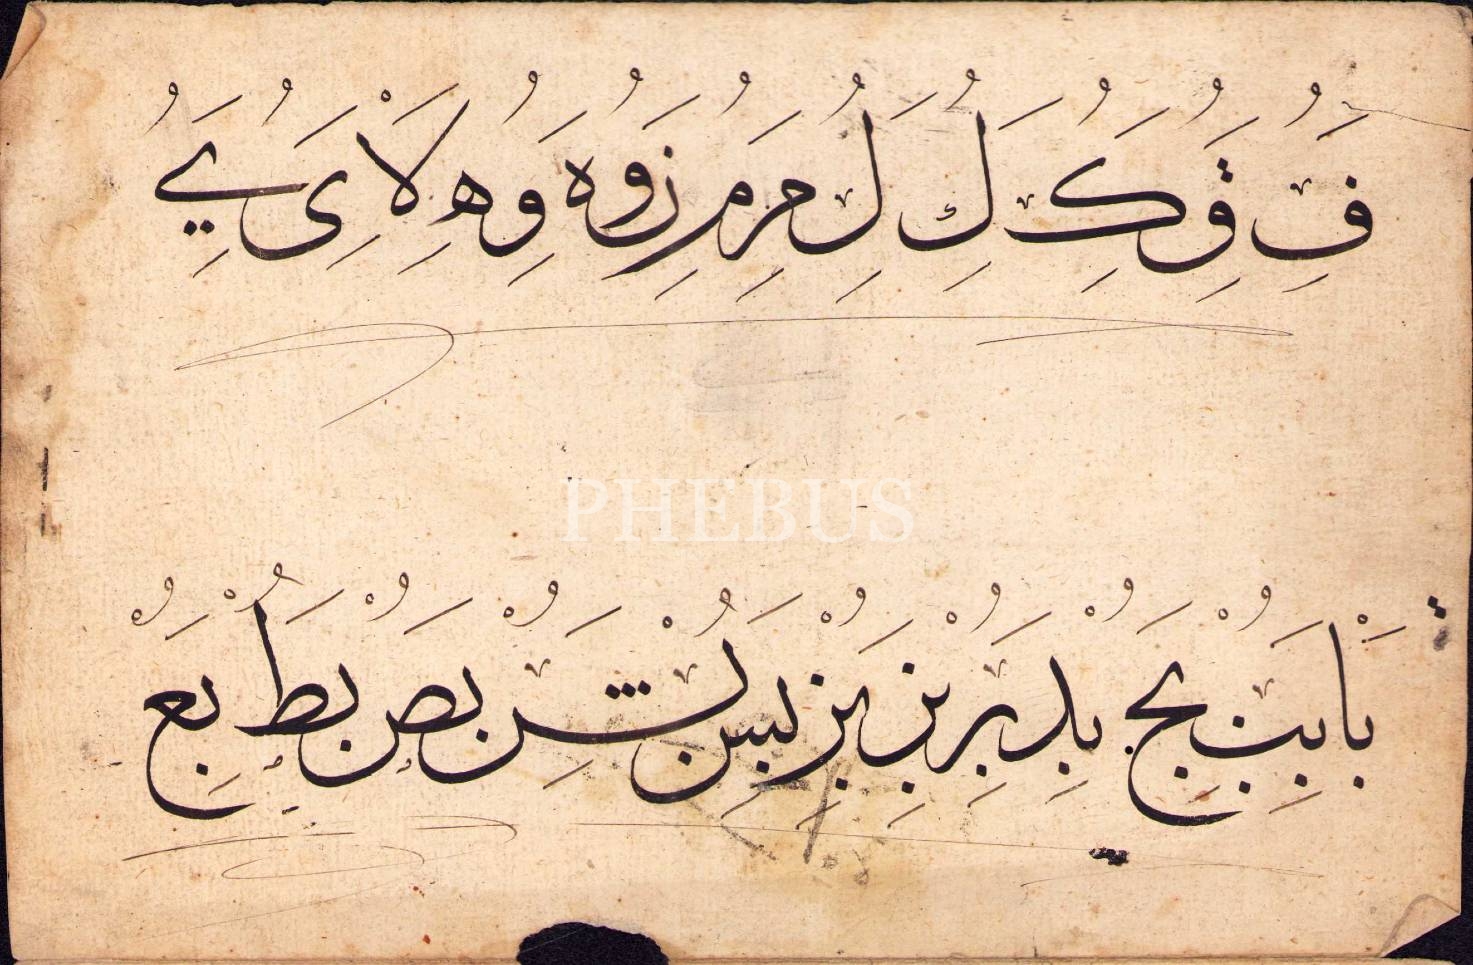 ف ق ک ك ل م م ن و ه و ه لا ى ے
PHEBUS
با بب بج بد بر بز بس بش بص بط بع